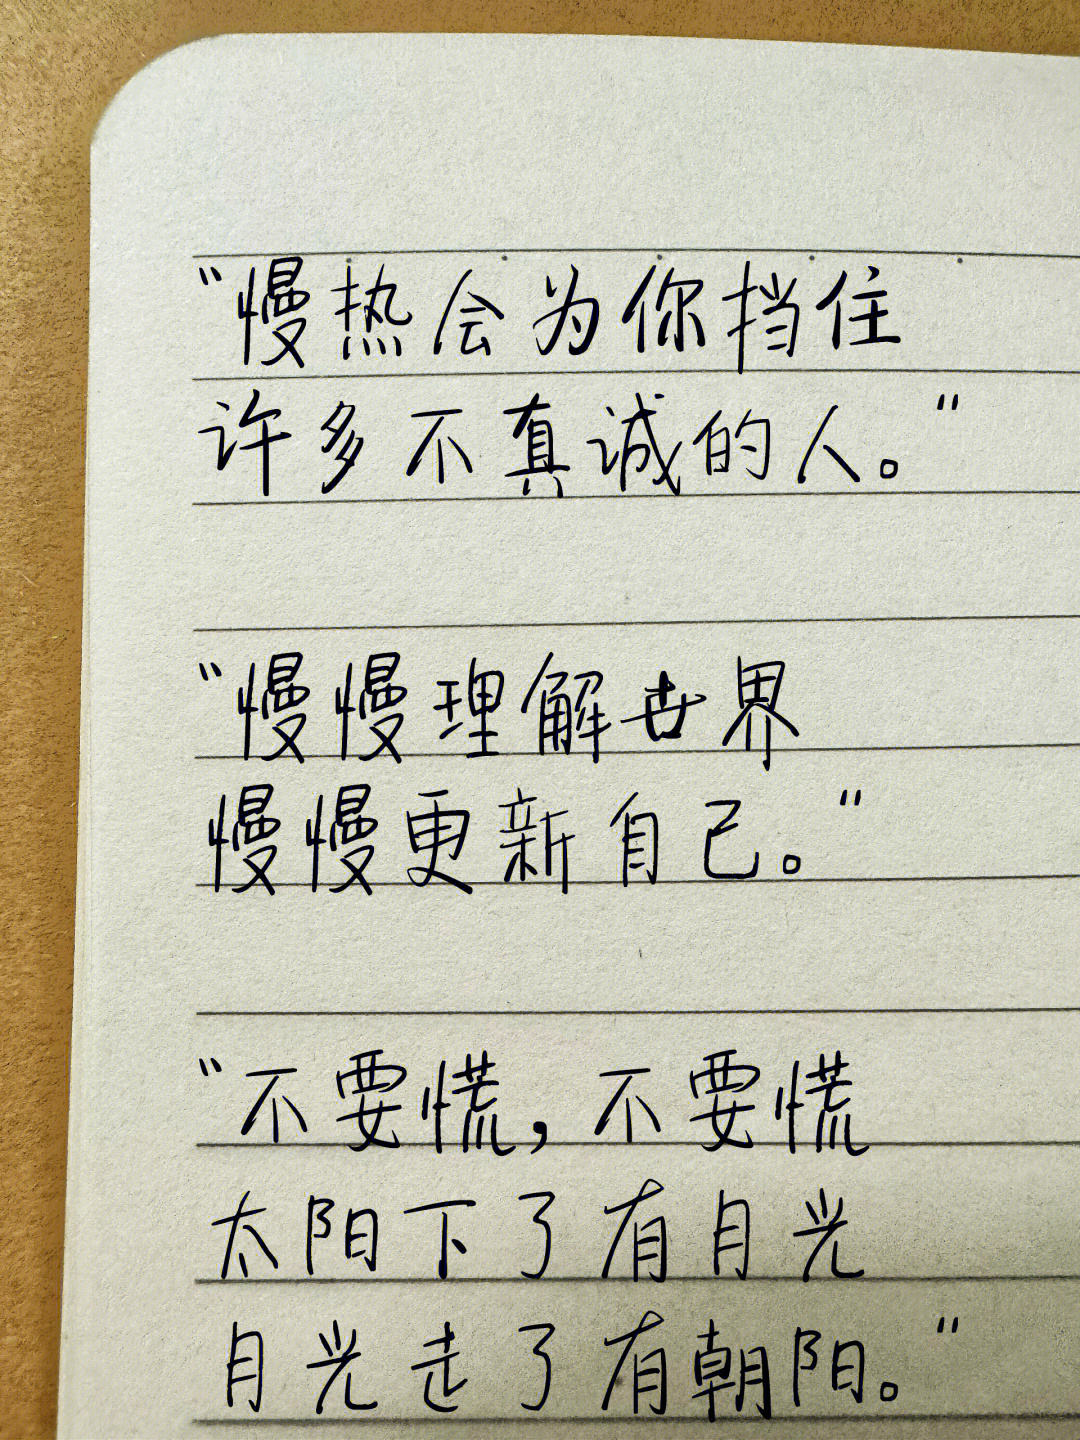 “慢热会为你挡住
许多不真诚的人。”
“慢慢理解世界
慢慢更新自己。”
“不要慌，不要慌
太阳下了有月光
月光走了有朝阳。”